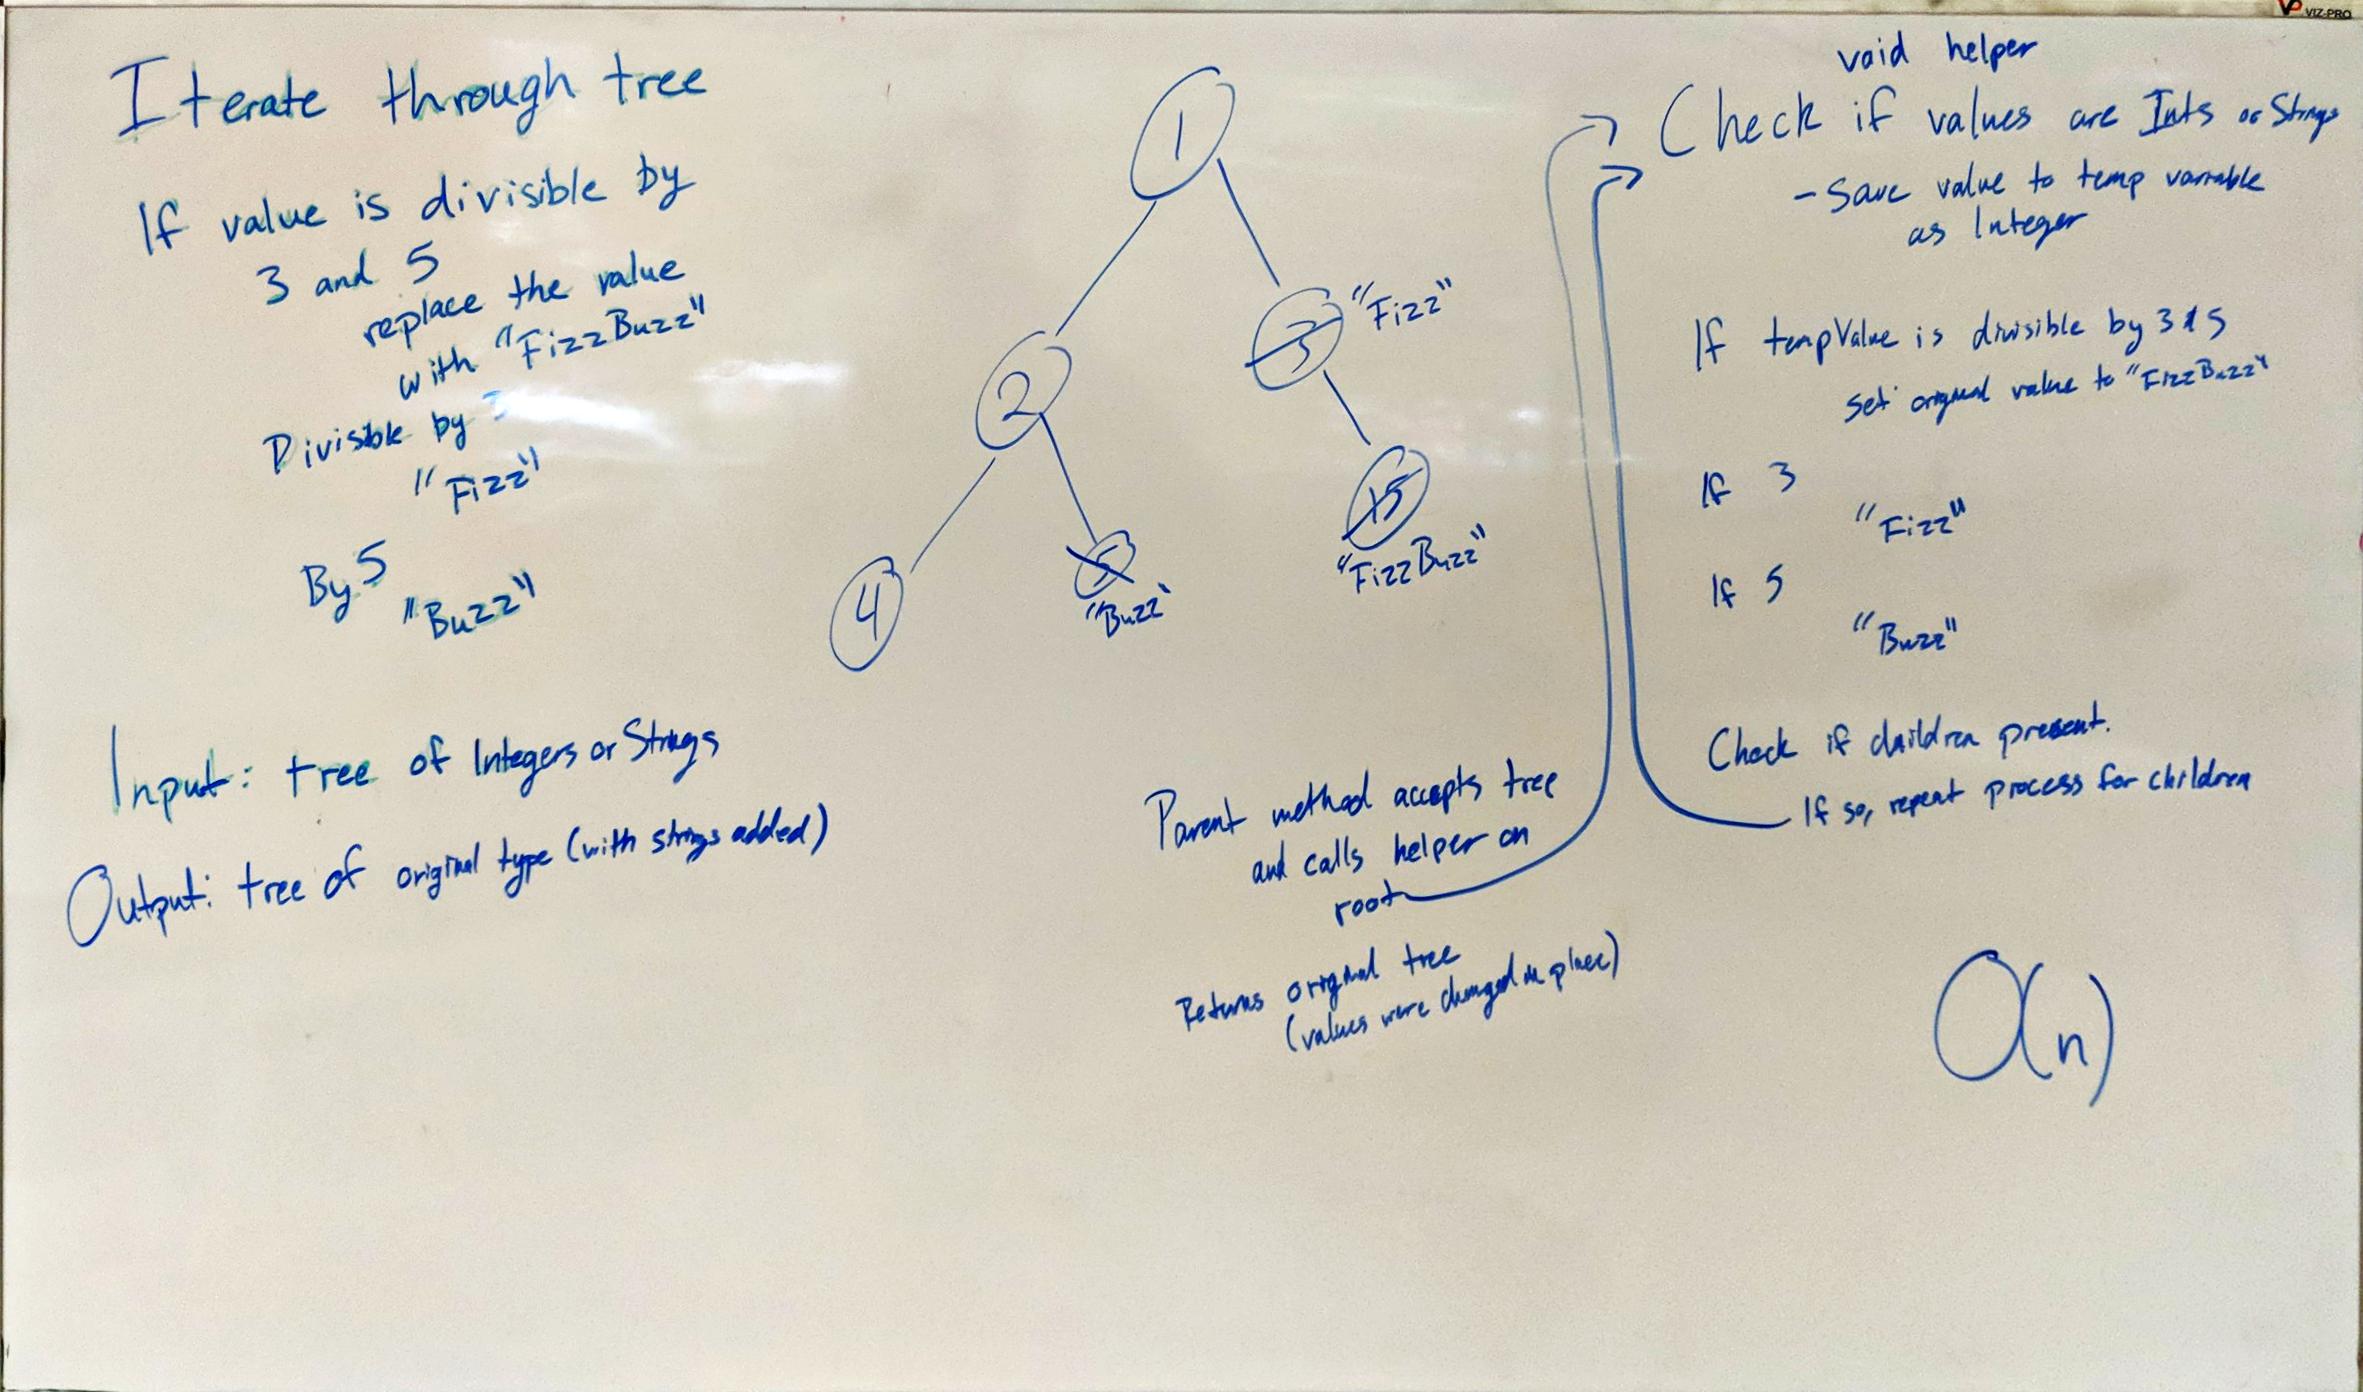 VIZ-PRO
Iterate through tree
If value is divisible by
3 and 5
replace the value
with "FizzBuzz"
Divisible by 3
"Fizz"
By 5
"Buzz"
Input: tree of Integers or Strings
Output: tree of original type (with strings added)
1
2
3
"Fizz"
4
5
"Buzz"
15
"FizzBuzz"
Parent method accepts tree
and calls helper on
root
Returns original tree
(values were changed in place)
void helper
Check if values are Ints or Strings
- Save value to temp variable
as Integer
If tempValue is divisible by 3 & 5
Set original value to "FizzBuzz"
If 3
"Fizz"
If 5
"Buzz"
Check if children present.
If so, repeat process for children
O(n)